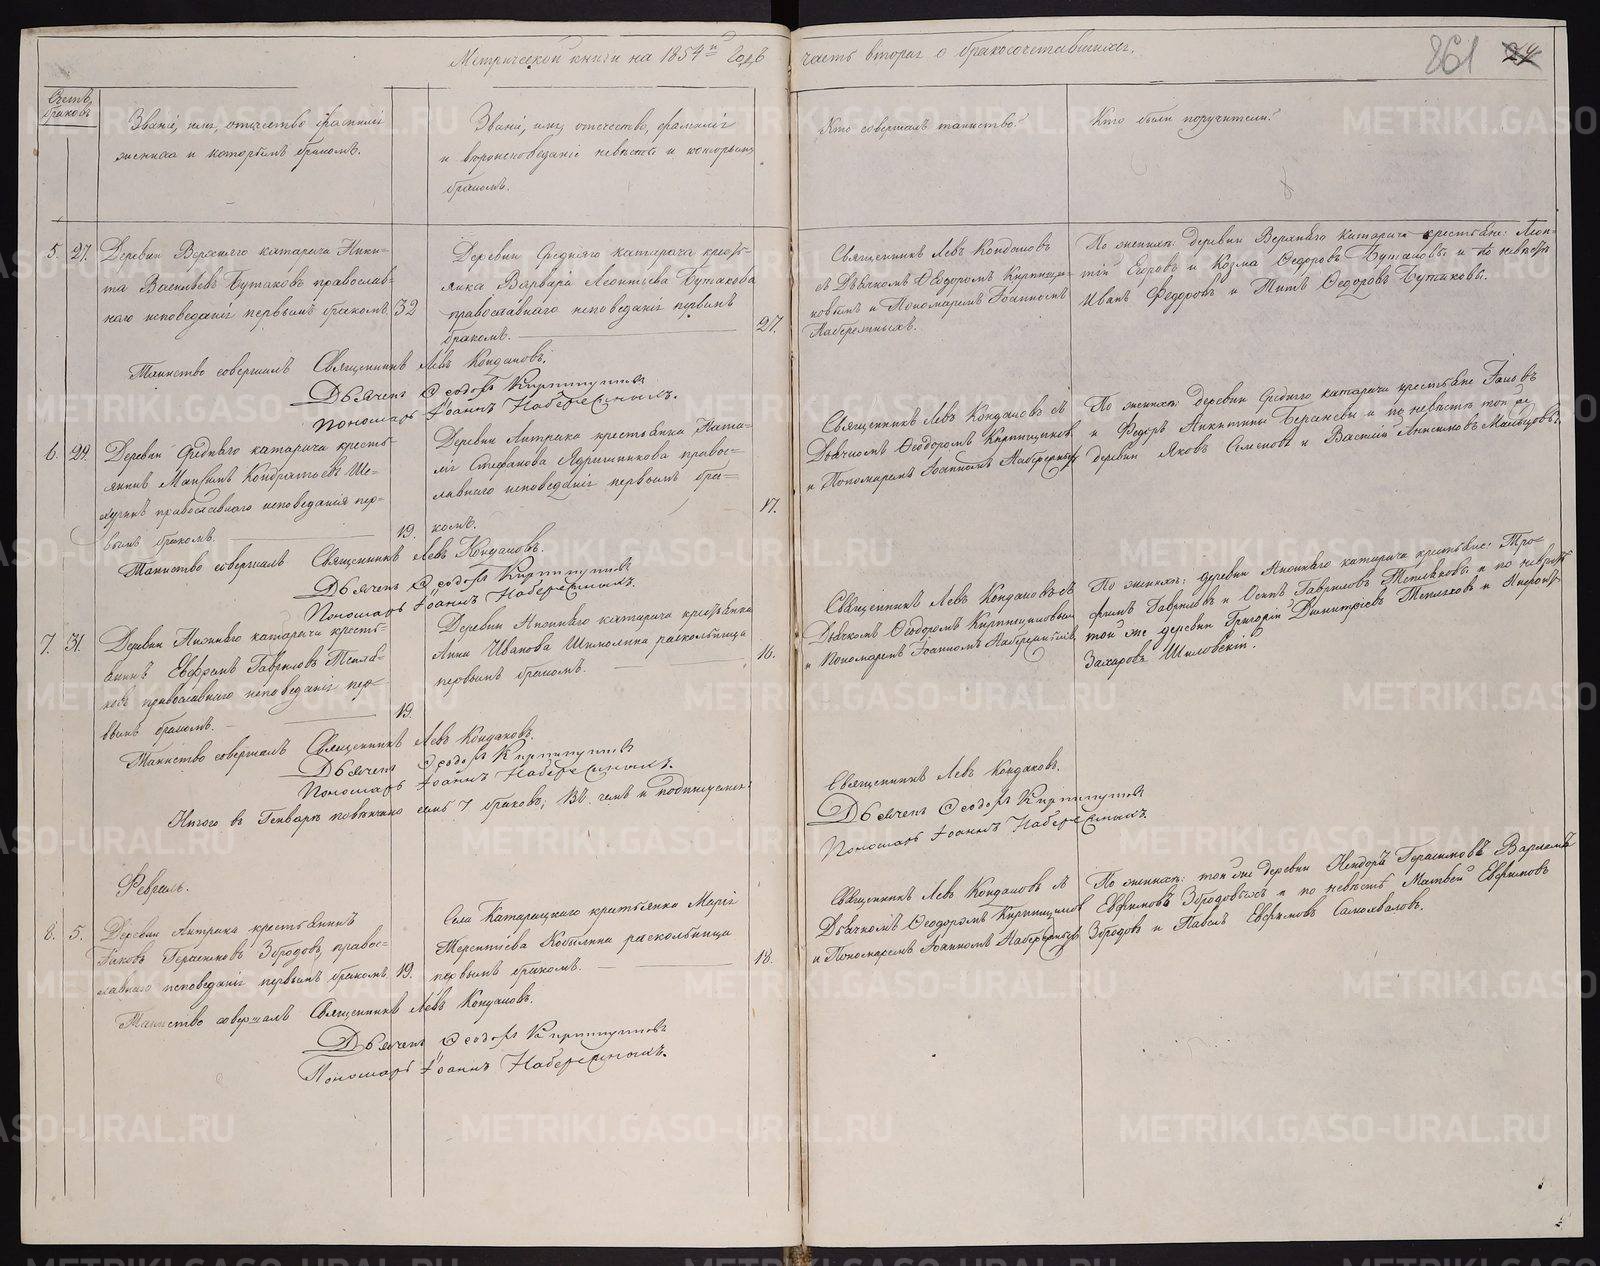 Метрической книги на 1854й годъ часть вторая о бракосочетавшихся.
861
24
Счетъ браковъ
Званіе, имя, отчество фамилія
жениха и которымъ бракомъ.
Званіе, имя, отечество, фамилія
и вѣроисповѣданіе невѣсты и которымъ
бракомъ.
Кто совершалъ таинство?
Кто были поручители?
5. 27.
Деревни Верхняго катарача Ники=
та Васильевъ Бутаковъ православ=
наго исповеданія первымъ бракомъ. 32
Деревни Средняго катарача кресть=
янка Варвара Леонтіева Бутакова
православнаго исповеданія первымъ
бракомъ. 27.
Священникъ Левъ Кондаковъ
съ Дьячкомъ Ѳеодоромъ Кирпищи=
ковымъ и Пономаремъ Іоанномъ
Набережныхъ.
По женихѣ: деревни Верхняго Катарача крестьяне: Леон=
тій Егоровъ и Козма Ѳедоровъ Бутаковы и по невѣстѣ
Иванъ Федоровъ и Титъ Ѳедоровъ Бутаковы.
Таинство совершалъ Священникъ Левъ Кондаковъ.
Дьячекъ Ѳеодоръ Кирпищиковъ
Пономарь Іоаннъ Набережныхъ.
6. 29.
Деревни Средняго катарача кресть=
янинъ Максимъ Кондратьевъ Ше=
православнаго исповеданія пер=
вымъ бракомъ. 19.
Деревни Антрака крестьянка Ната=
лія Стефанова Ядришникова правос=
лавнаго исповеданія первымъ бра=
комъ. 17.
Священникъ Левъ Кондаковъ съ
Дьячкомъ Ѳеодоромъ Кирпищиков.
и Пономаремъ Іоанномъ Набережных
По женихѣ: деревни Средняго катарача крестьяне
и Федоръ Никитины и по невѣстѣ той же
деревни Яковъ Семеновъ и Василій Анисимовъ Мальцовы.
Таинство совершалъ Священникъ Левъ Кондаковъ.
Дьячекъ Ѳеодоръ Кирпищиковъ
Пономарь Іоаннъ Набережныхъ.
7. 31.
Деревни Нижняго катарача кресть=
янинъ Евфремъ Гавриловъ Тепля=
ковъ православнаго исповеданія пер=
вымъ бракомъ. 19.
Деревни Нижняго катарача крестьянка
Анна Иванова Шимолина раскольница
первымъ бракомъ. 16.
Священникъ Левъ Кондаковъ съ
Дьячкомъ Ѳеодоромъ Кирпищиковым
и Пономаремъ Іоанномъ Набережныхъ.
По женихѣ: деревни Нижняго катарача крестьяне: Тро=
фимъ Гавриловъ и Осипъ Гавриловъ Тепляковы и по невѣстѣ
той же деревни Григорій Димитріевъ Тепляковъ и
Захаровъ Шиловскій.
Таинство совершалъ Священникъ Левъ Кондаковъ.
Дьячекъ Ѳеодоръ Кирпищиковъ
Пономарь Іоаннъ Набережныхъ.
Итого въ Генварѣ повѣнчано семь 7 браковъ; въ чемъ и подпишуемся:
Священникъ Левъ Кондаковъ.
Дьячекъ Ѳеодоръ Кирпищиковъ
Пономарь Іоаннъ Набережныхъ.
Февраль.
8. 5.
Деревни Антрака крестьянинъ
Іаковъ Герасимовъ Збродовъ, правос=
лавнаго исповеданія первымъ бракомъ 19.
Села Катарацкаго крестьянка Марія
Терентіева Кобылина раскольница
первымъ бракомъ. 18.
Священникъ Левъ Кондаковъ съ
Дьячкомъ Ѳеодоромъ Кирпищиков
и Пономаремъ Іоанномъ Набережных
По женихѣ: той же деревни Герасимовъ
Евфимовъ Збродовыхъ и по невѣстѣ Матвей Евфимовъ
Збродовъ и Павелъ Евфимовъ Самохваловъ.
Таинство совершалъ Священникъ Левъ Кондаковъ.
Дьячекъ Ѳеодоръ Кирпищиковъ
Пономарь Іоаннъ Набережныхъ.
METRIKI.GASO-URAL.RU